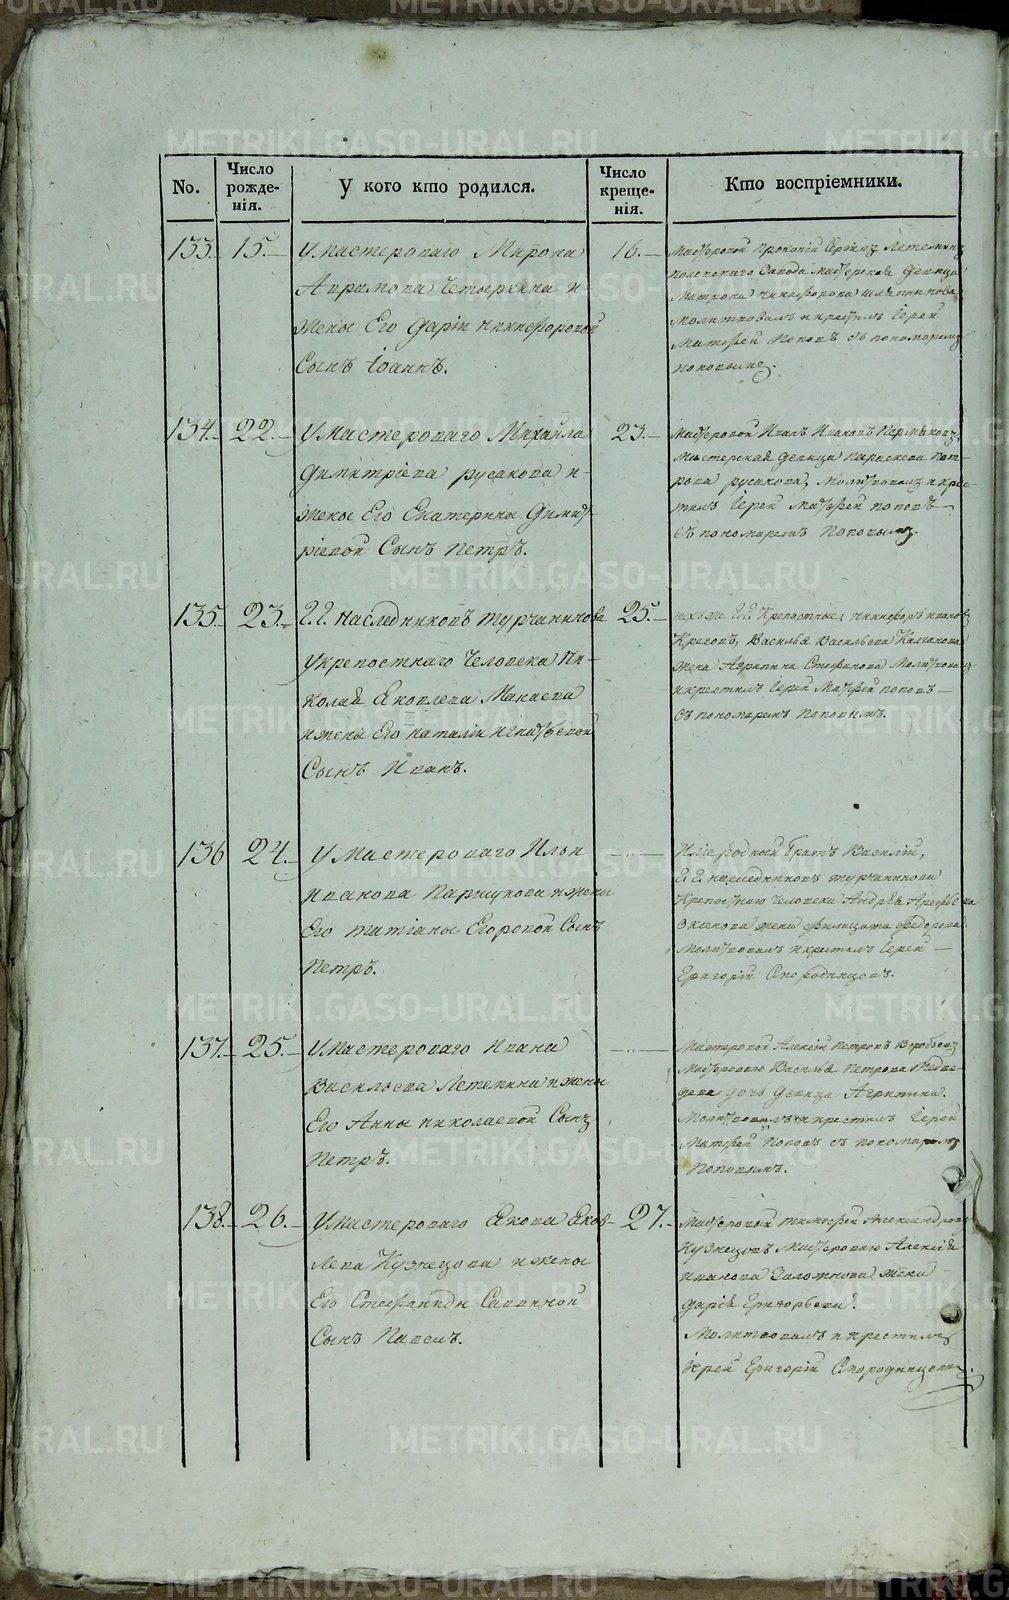 METRIKI.GASO-URAL.RU
No.
Число рожде-нія.
У кого кто родился.
Число креще-нія.
Кто воспріемники.
133. 15.
У мастероваго Мирона
Аврамова Четыркина и
жены Его Даріи Никифоровой
Сынъ Іоаннъ.
16.
Мастеровой Прокопій
Завода мастерская девица
Матрона Никифорова
Молитвовалъ и крестилъ Іерей
Матфей Поповъ съ пономаремъ
Поповымъ.
134. 22.
У Мастероваго Михайла
Димитріева Русакова и
жены Его Екатерины Димит-
ріевой Сынъ Петръ.
23.
Мастеровой Иванъ Ивановъ Пермяковъ
Мастерская девица Параскева Пет-
рова Русакова, Молитвовалъ и крес-
тилъ Іерей Матфей Поповъ
съ пономаремъ Поповымъ.
135. 23.
Г.г. наследниковъ Турчанинова
у крепостнаго человека Ни-
колая Яковлева Манаева
и жены Его Наталіи Игнатьевой
Сынъ Иванъ.
25.
техъ же Г.г. Крепостные: Никифоръ Иванов
Василья Васильева
жена Агрипина Стефанова Молитвовалъ
и крестилъ Іерей Матфей Поповъ
съ пономаремъ Поповымъ.
136 24.
У Мастероваго Ильи
Иванова Паршукова и жены
Его Татіаны Егоровой Сынъ
Петръ.
родный братъ Василій,
Г.г. наследниковъ Турчанинова
Крепостнаго человека Андрея
жена Филицата Федорова.
Молитвовалъ и крестилъ Іерей
Григорій Смородинцовъ.
137. 25.
У Мастероваго Ивана
Васильева Летемина и жены
Его Анны Николаевой Сынъ
Петръ.
Мастеровой Алексій Петровъ Воробьевъ
Мастероваго Василья Петрова Медве-
дева дочь девица Агрипина.
Молитвовалъ и крестилъ Іерей
Матфей Поповъ съ пономаремъ
Поповымъ.
138. 26.
У Мастероваго Якова Яков-
лева Кузнецова и жены
Его Стефаниды Саввиной
Сынъ Павелъ.
27.
Мастеровый Тимофей Александровъ
Кузнецовъ Мастероваго Алексія
Иванова жена
Дарія Григорьева.
Молитвовалъ и крестилъ
Іерей Григорій Смородинцовъ.